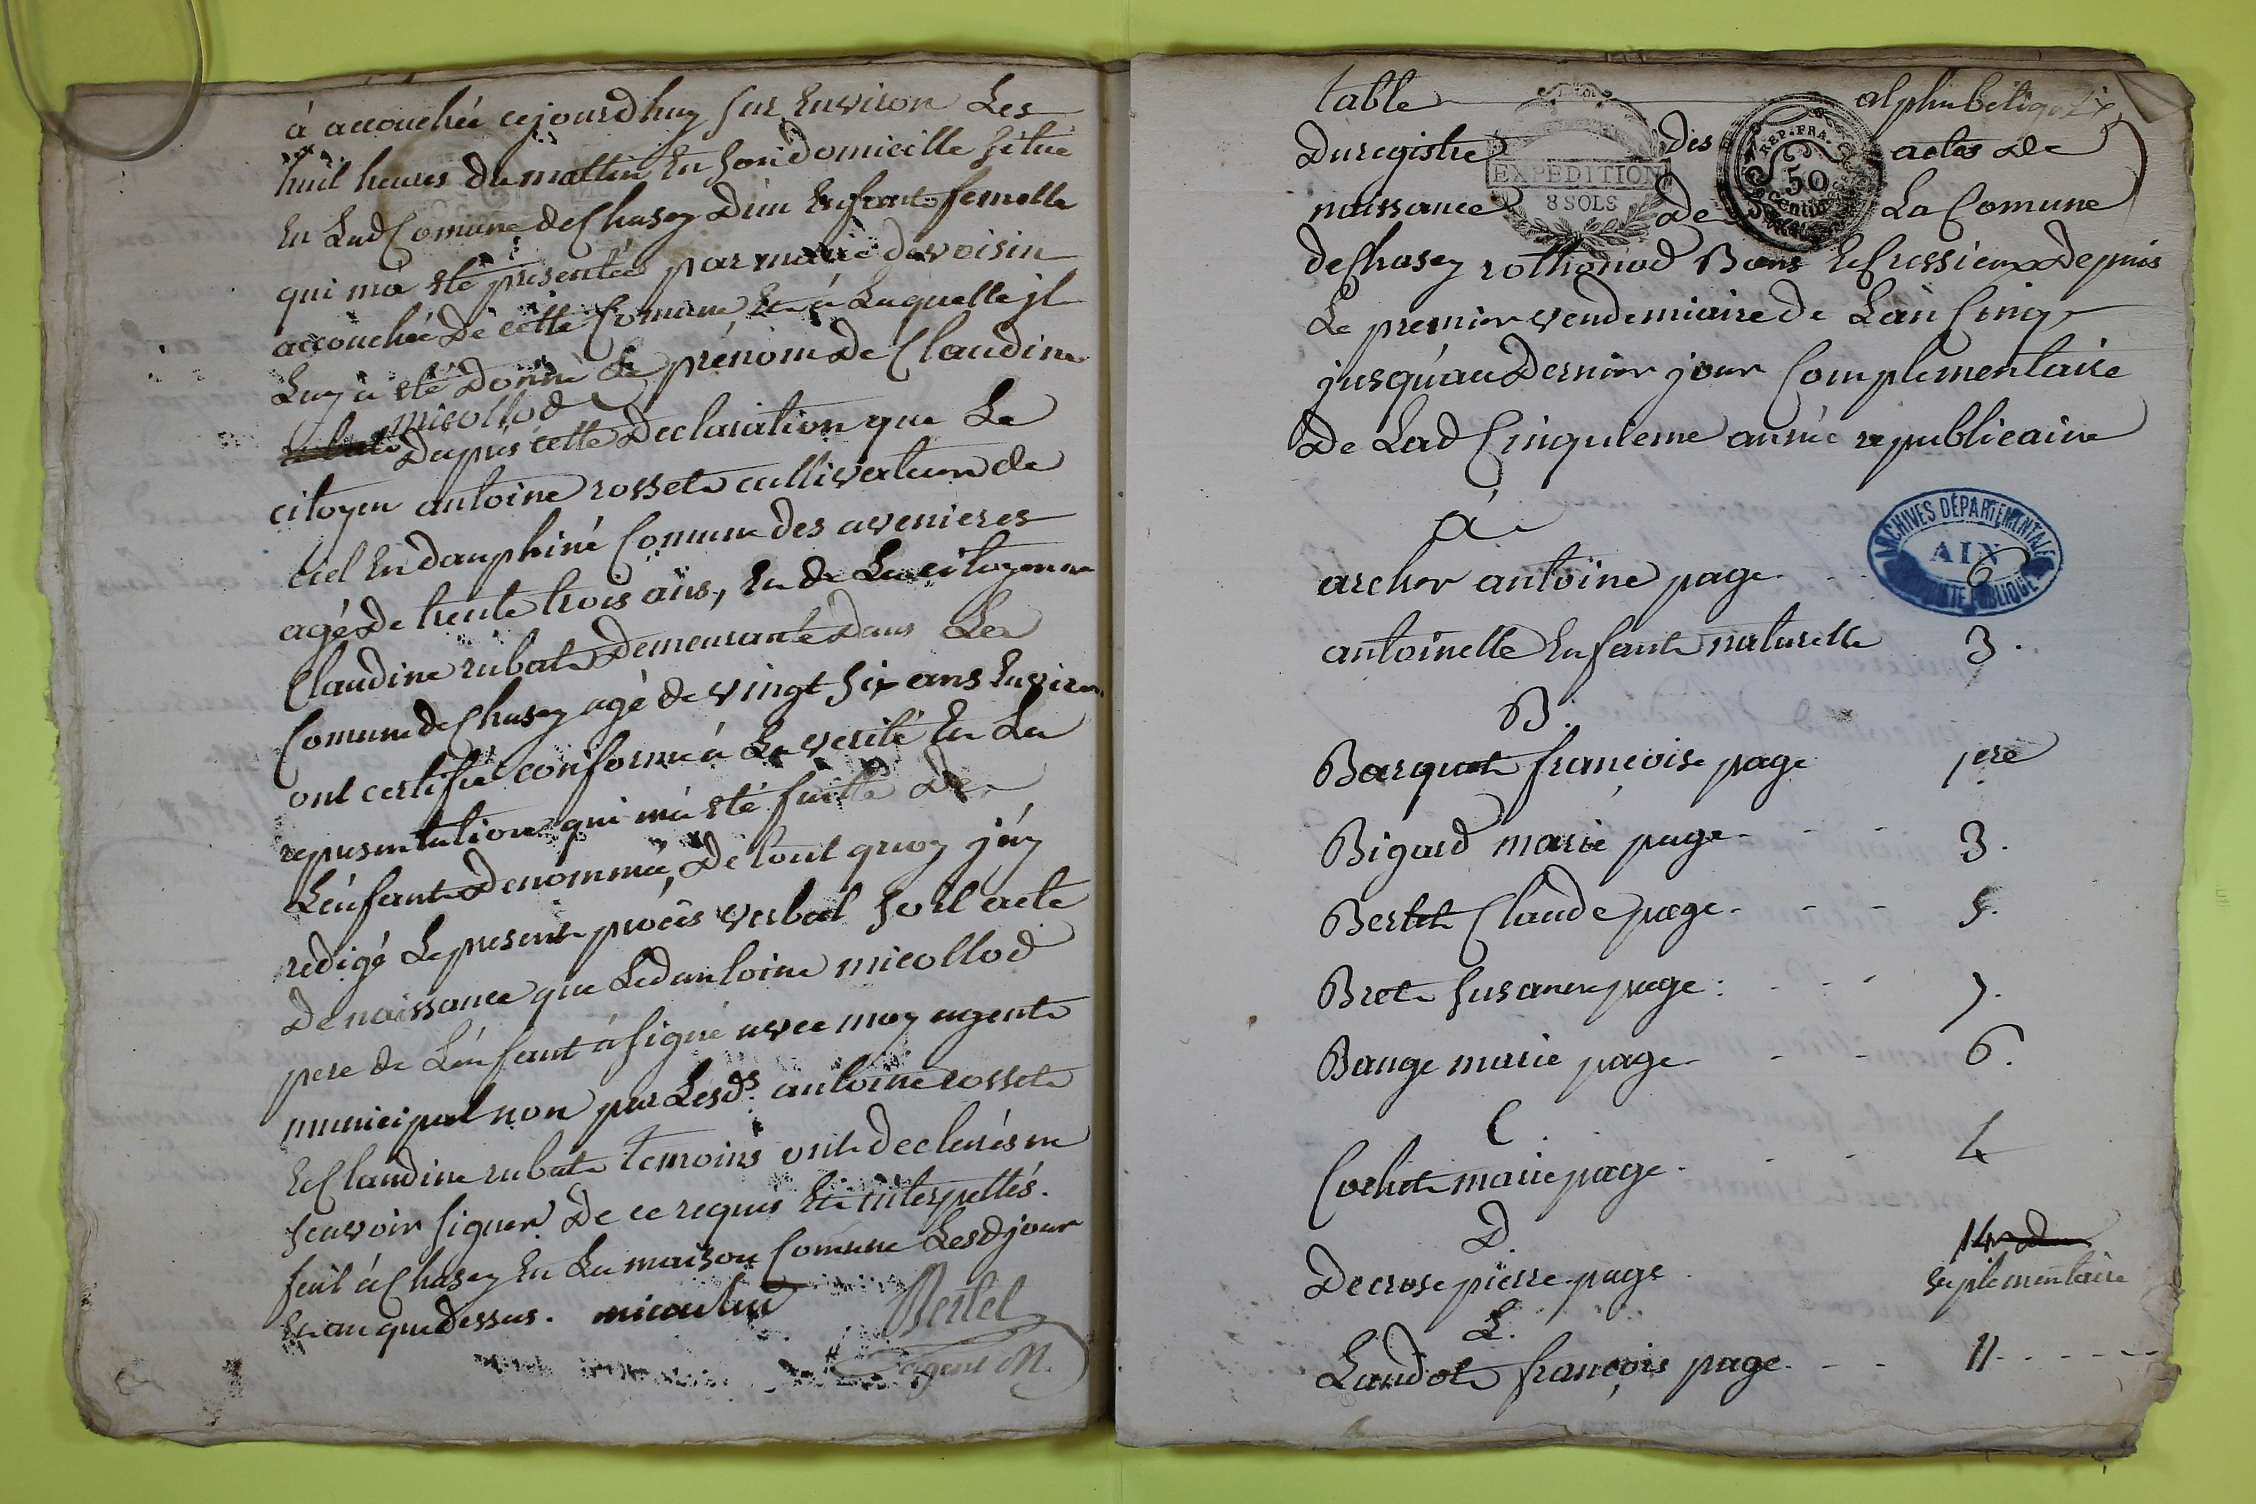 à accouchée cejourdhuy sur Environ Les
huit heures du mattin En son domicille situé
En Lad Comune de Chasey Dun Enfant femelle
qui ma eté présentée par marie devoisin
accouchée de cette Comune Et à Laquelle jl
Luy à eté Donné Le prénom de Claudine
micollod
Dapres cette Declaration que Le
citoyen antoine rosset cultivateur de
ciel En dauphiné Comune des avenieres
agé de trente trois ans, En de La citoyenne
Claudine rubat Demeurante dans La
Comune de Chasey agé de vingt six ans Environ
ont certifié conforme à La verité En La
representation qui ma eté faitte de
L'enfant Denommée, De tout quoy j'ay
redigé Le present procès verbal soit acte
De naissance que Led antoine micollod
pere de L'enfant à signé avec moy agent
municipal non par Lesds antoine rosset
Et Claudine rubat temoins ont declarés ne
scavoir signer De ce requis Et interpellés.
fait à Chasey En La maison Comune Lesd jour
En an que dessus. micoulud Bertet
agent M.
table alphabetique
Du registre des actes de
naissance de La Comune
de Chasey rothonod Bons Et Cressieux Depuis
Le premier vendemiaire de Lan Cinq
jusqu'au Dernier jour Complementaire
De Lad Cinquieme année republicaine
EXPEDITION
8 SOLS
REP. FRA.
50
centimes
ARCHIVES DÉPARTEMENTALES
AIN
A
archer antoine page 6
antoinette Enfant naturelle 3.
B.
Barquet françoise page 1ere
Bigard marie page 3.
Bertet Claude page 5.
Bret susanne page 7.
Bange marie page 6.
C.
Cochet marie page 4
D.
Decrose pierre page 14
suplementaire
L.
Laudot françois page 11